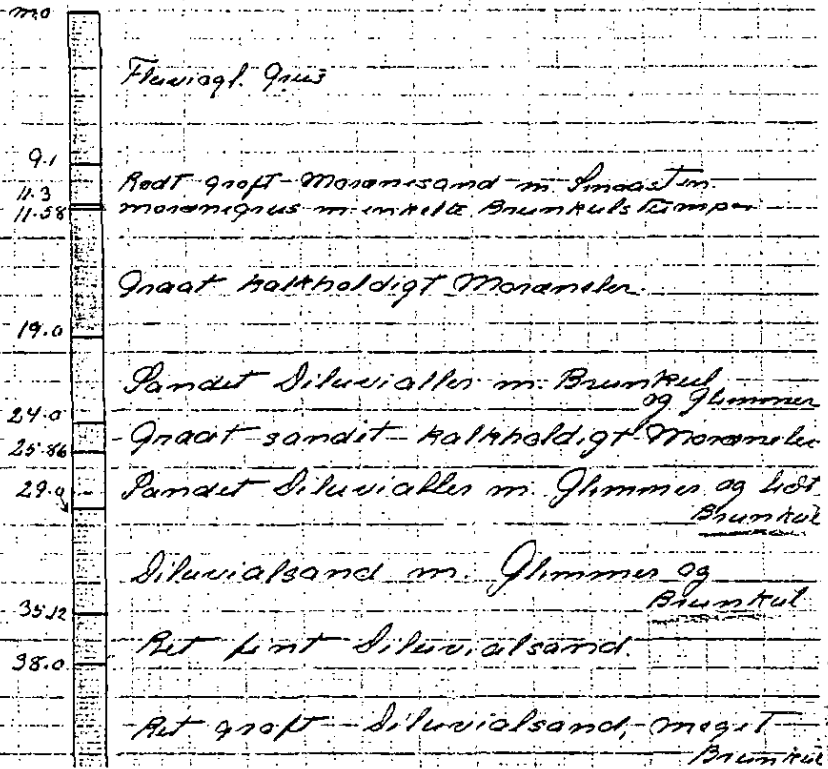 m.o
Fluviogl. Grus
9.1
Rødt groft Morænesand m. Smaasten.
11.3
11.58 morænegrus m. enkelte Brunkulstumper
Graat kalkholdigt Moræneler.
19.0
Sandet Diluvialler m. Brunkul
og Glimmer
24.0
Graat sandet kalkholdigt Moræneler
25.86
29.0 Sandet Diluvialler m. Glimmer og lidt
Brunkul
Diluvialsand m. Glimmer og
Brunkul
35.12
Ret fint Diluvialsand.
38.0
Ret groft Diluvialsand, meget
Brunkul